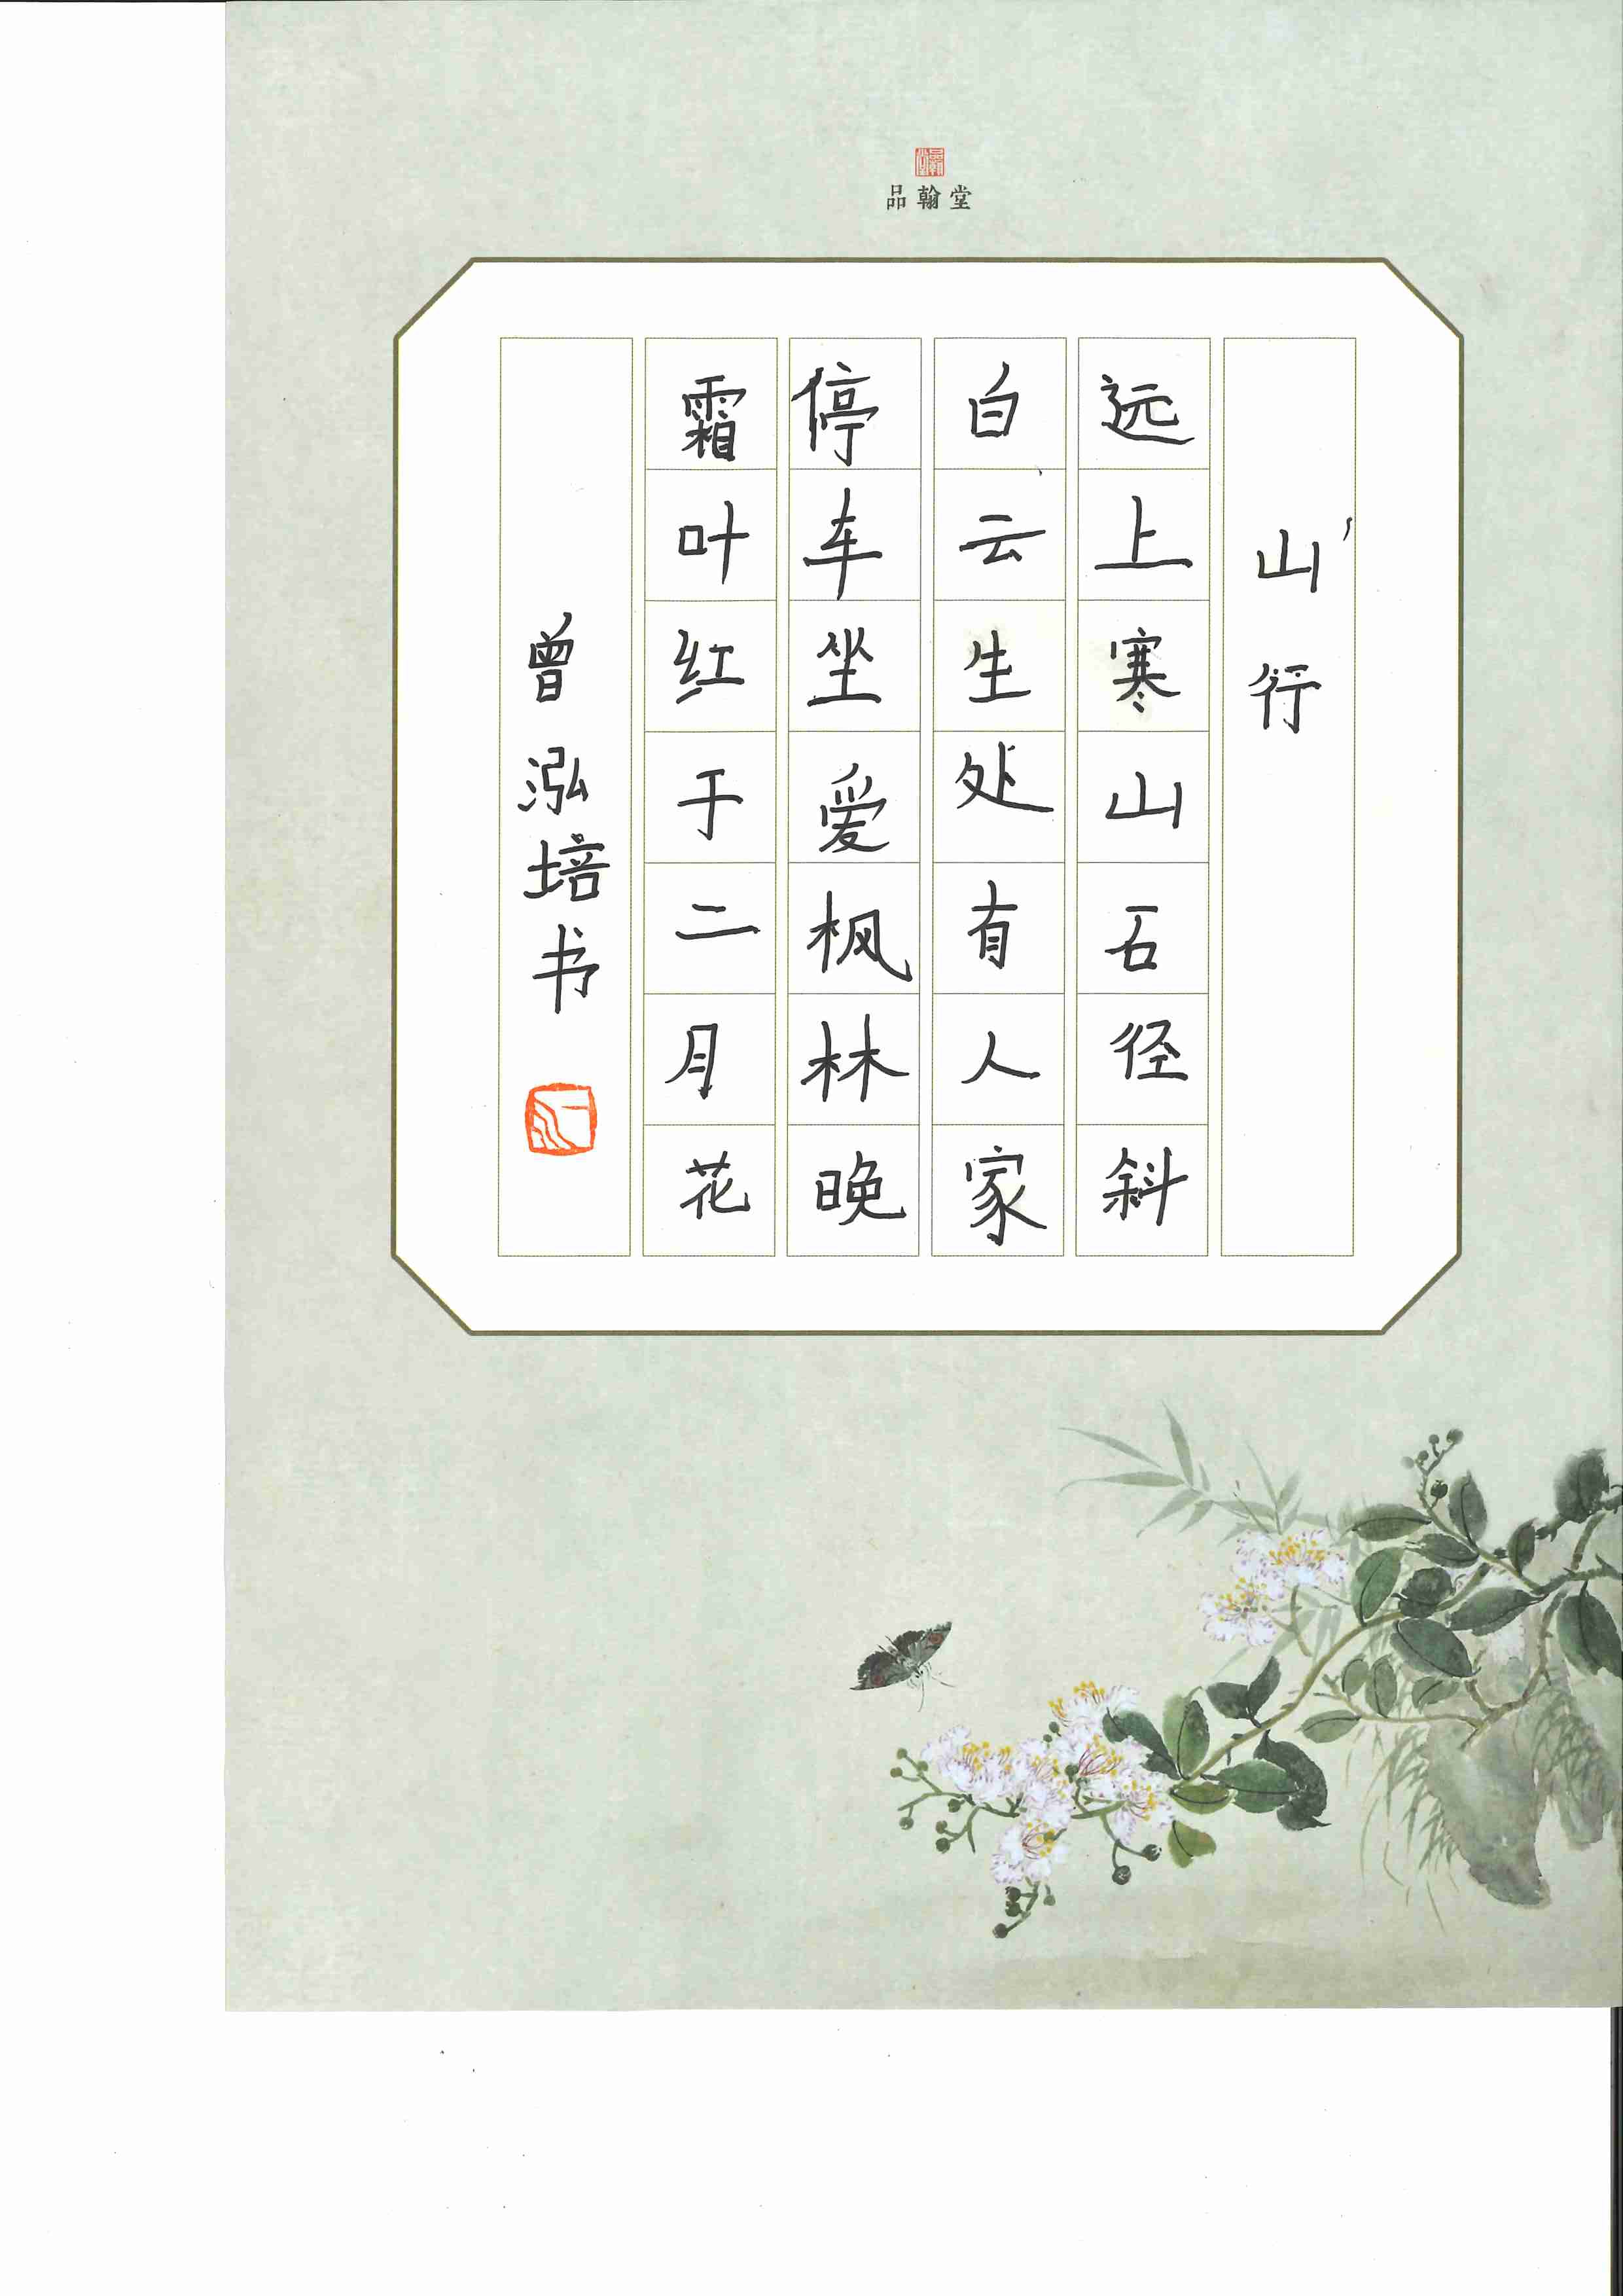 品翰堂
山行
远上寒山石径斜
白云生处有人家
停车坐爱枫林晚
霜叶红于二月花
曾泓培书